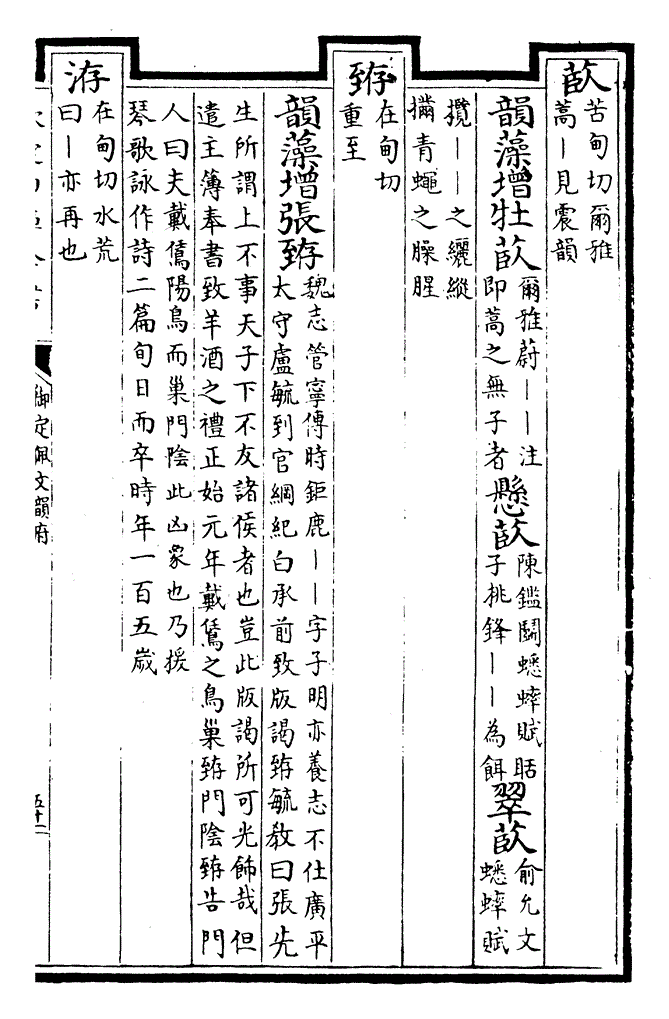 菣
苦甸切爾雅
蒿｜見震韻
韻藻增牡菣
爾雅蔚｜｜注
即蒿之無子者
懸菣
陳鑑鬭蟋蟀賦聒
子桃鋒｜｜為餌
翠菣
俞允文
蟋蟀賦
攬｜｜之纚縱
青蠅之臊腥
臶
在甸切
重至
韻藻增張臶
魏志管寧傳時鉅鹿｜｜字子明亦養志不仕廣平
太守盧毓到官綱紀白承前致版謁臶毓教曰張先
生所謂上不事天子下不友諸侯者也豈此版謁所可光飾哉但
遣主簿奉書致羊酒之禮正始元年戴鵀之鳥巢臶門陰臶告門
人曰夫戴鵀陽鳥而巢門陰此凶象也乃援
琴歌詠作詩二篇旬日而卒時年一百五歲
洊
在甸切水荒
曰｜亦再也
御定佩文韻府
五十二